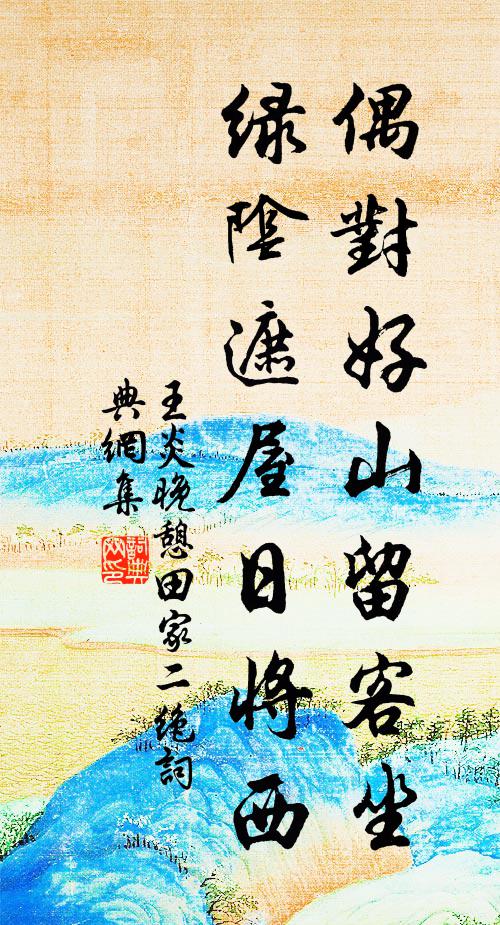 偶對好山留客坐
緑陰遮屋日將西
王炎晚憩田家二絶詞
典網集
詞典網印